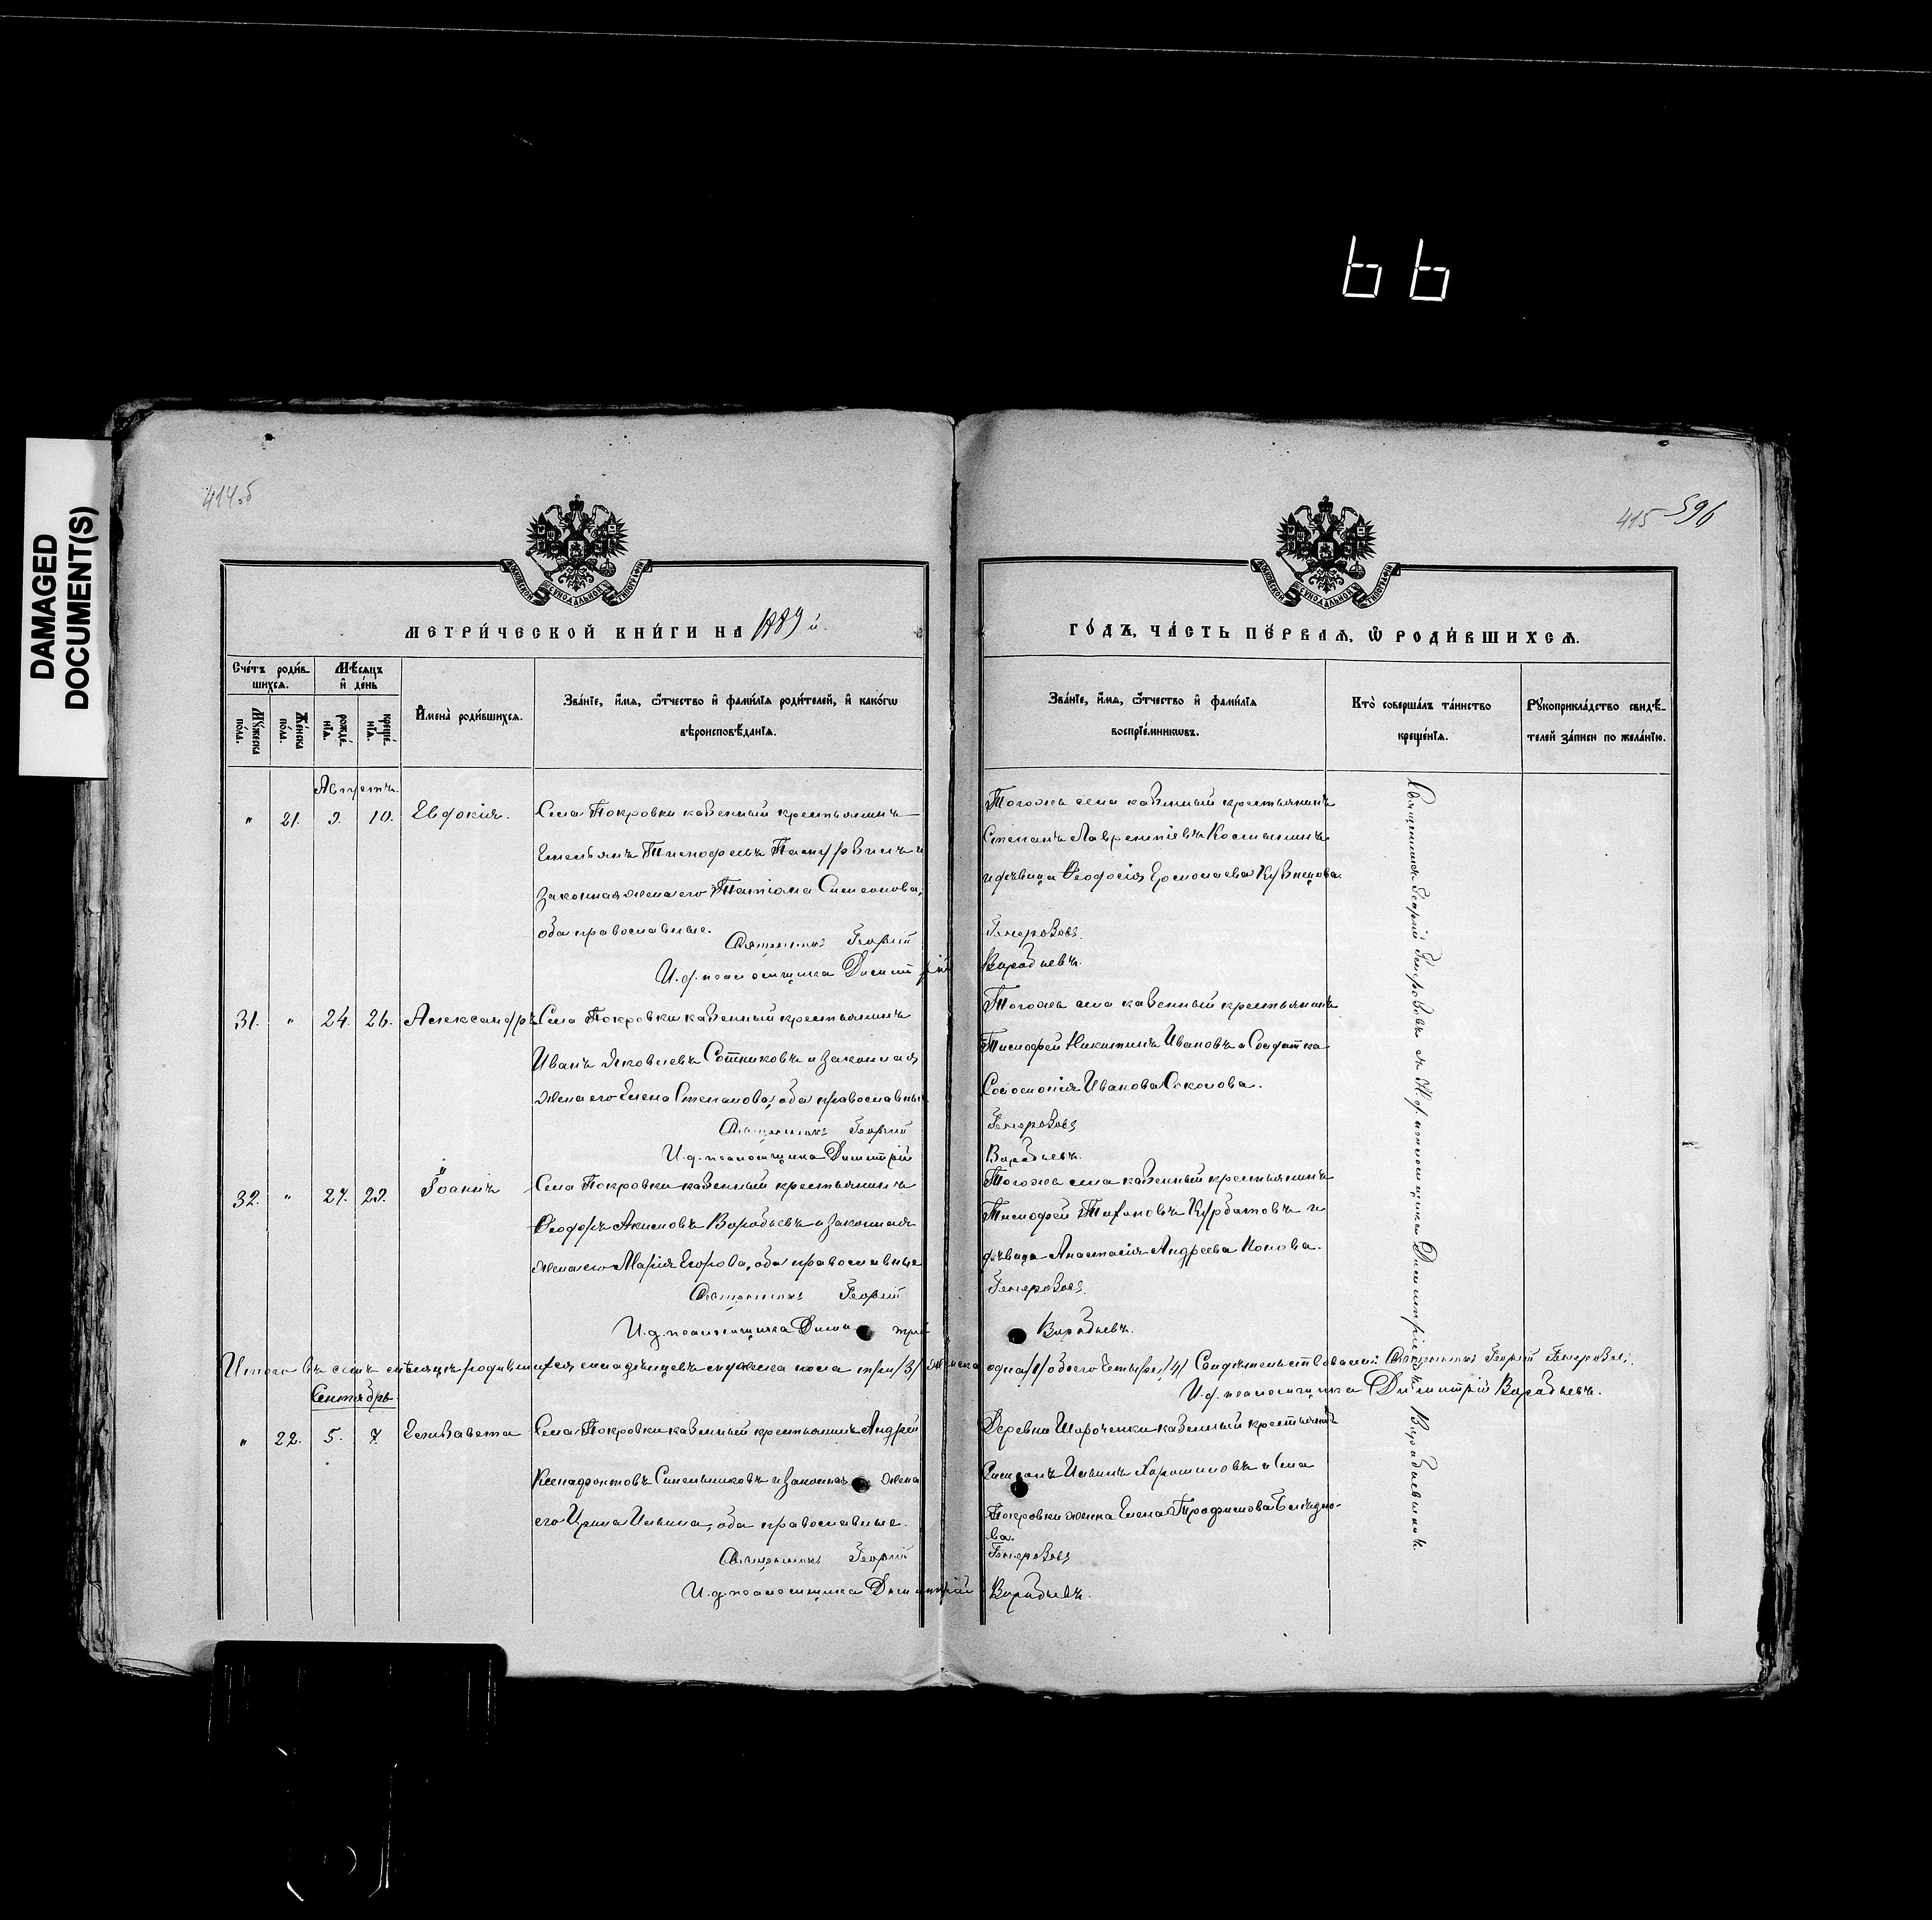 DAMAGED
DOCUMENT(S)
66
414об
415 596
МЕТРИ́ЧЕСКОЙ КНИ́ГИ НА 1889 й.
ГО́ДЪ, ЧА́СТЬ ПЕ́РВАЯ, Ѿ РОДИ́ВШИХСЯ.
Сче́тъ роди́вшихся.
Мѣ́сяцъ и҆ де́нь
Мꙋ́жеска по́ла.
Же́нска по́ла.
рожде́нїя.
креще́нїя.
И҆мена̀ роди́вшихся.
Зва́нїе, и҆́мя, ѻ҆́тчество и҆ фами́лїя роди́телей, и҆ како́гѡ
вѣроисповѣ́данїя.
Зва́нїе, и҆́мя, ѻ҆́тчество и҆ фами́лїя
воспрїе́мникѡвъ.
Кто̀ соверша́лъ та́инство
креще́нїя.
Рꙋкоприкла́дство свидѣ́телей за́писи по жела́нїю.
Августъ.
" 21. 9. 10. Евдокія. Села Покровки казенный крестьянинъ
Емельянъ Тимофеевъ и
законная жена его Татіана Симеонова,
оба православные.
Священникъ Георгій
И.д. псаломщика Димитрій
Тогоже села казенный крестьянинъ
Степанъ Лаврентіевъ Косьминъ
и дѣвица Феодосія Ермолаева Кузнецова.
Генерозовъ.
Воробьевъ.
31. " 24. 26. Александръ Села Покровки казенный крестьянинъ
Иванъ Яковлевъ Сотниковъ и законная
жена его Елена Степанова, оба православные
Священникъ Георгій
И.д. псаломщика Димитрій
Тогоже села казенный крестьянинъ
Тимофей Никитинъ Ивановъ и Солдатка
Соломонія Иванова Соколова.
Генерозовъ
Воробьевъ.
32. " 27. 29. Іоаннъ Села Покровки казенный крестьянинъ
Феодоръ Акимовъ Воробьевъ и законная
жена его Марія Егорова, оба православные
Священникъ Георгій
И.д. псаломщика Димитрій
Тогоже села казенный крестьянинъ
Тимофей Курбатовъ и
дѣвица Анастасія Андреева Попова.
Генерозовъ.
Воробьевъ.
Итого въ семъ мѣсяцѣ родившихся младенцевъ мужеска пола три /3/ женска одна /1/ обоего четыре /4/ Свидѣтельствовали: Священникъ Георгій Генерозовъ.
И.д. псаломщика Димитрій Воробьевъ.
Сентябрь
" 22. 5. 7. Елизавета Села Покровки казенный крестьянинъ Андрей
Ксенофонтовъ Синельниковъ и законная жена
его Ирина Ильина, оба православные.
Священникъ Георгій
И.д. псаломщика Димитрій
Деревни казенный крестьянинъ
Ильинъ и села
Покровки женка Елена Трофимова
Генерозовъ
Воробьевъ.
Священникъ Георгій Генерозовъ съ И.д. псаломщика Димитріемъ Воробьевымъ.